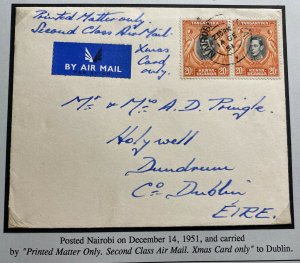 Printed Matter only.
Second Class Air Mail.
Xmas
Card
only.
BY AIR MAIL
TANGANYIKA
TANGANYIKA
NAIROBI
KENYA
KENYA
20c
20c
20c
20c
Mr & Mrs A. D. Pringle.
Holywell
Dundrum
Co Dublin
ÉIRE.
Posted Nairobi on December 14, 1951, and carried
by "Printed Matter Only. Second Class Air Mail. Xmas Card only" to Dublin.